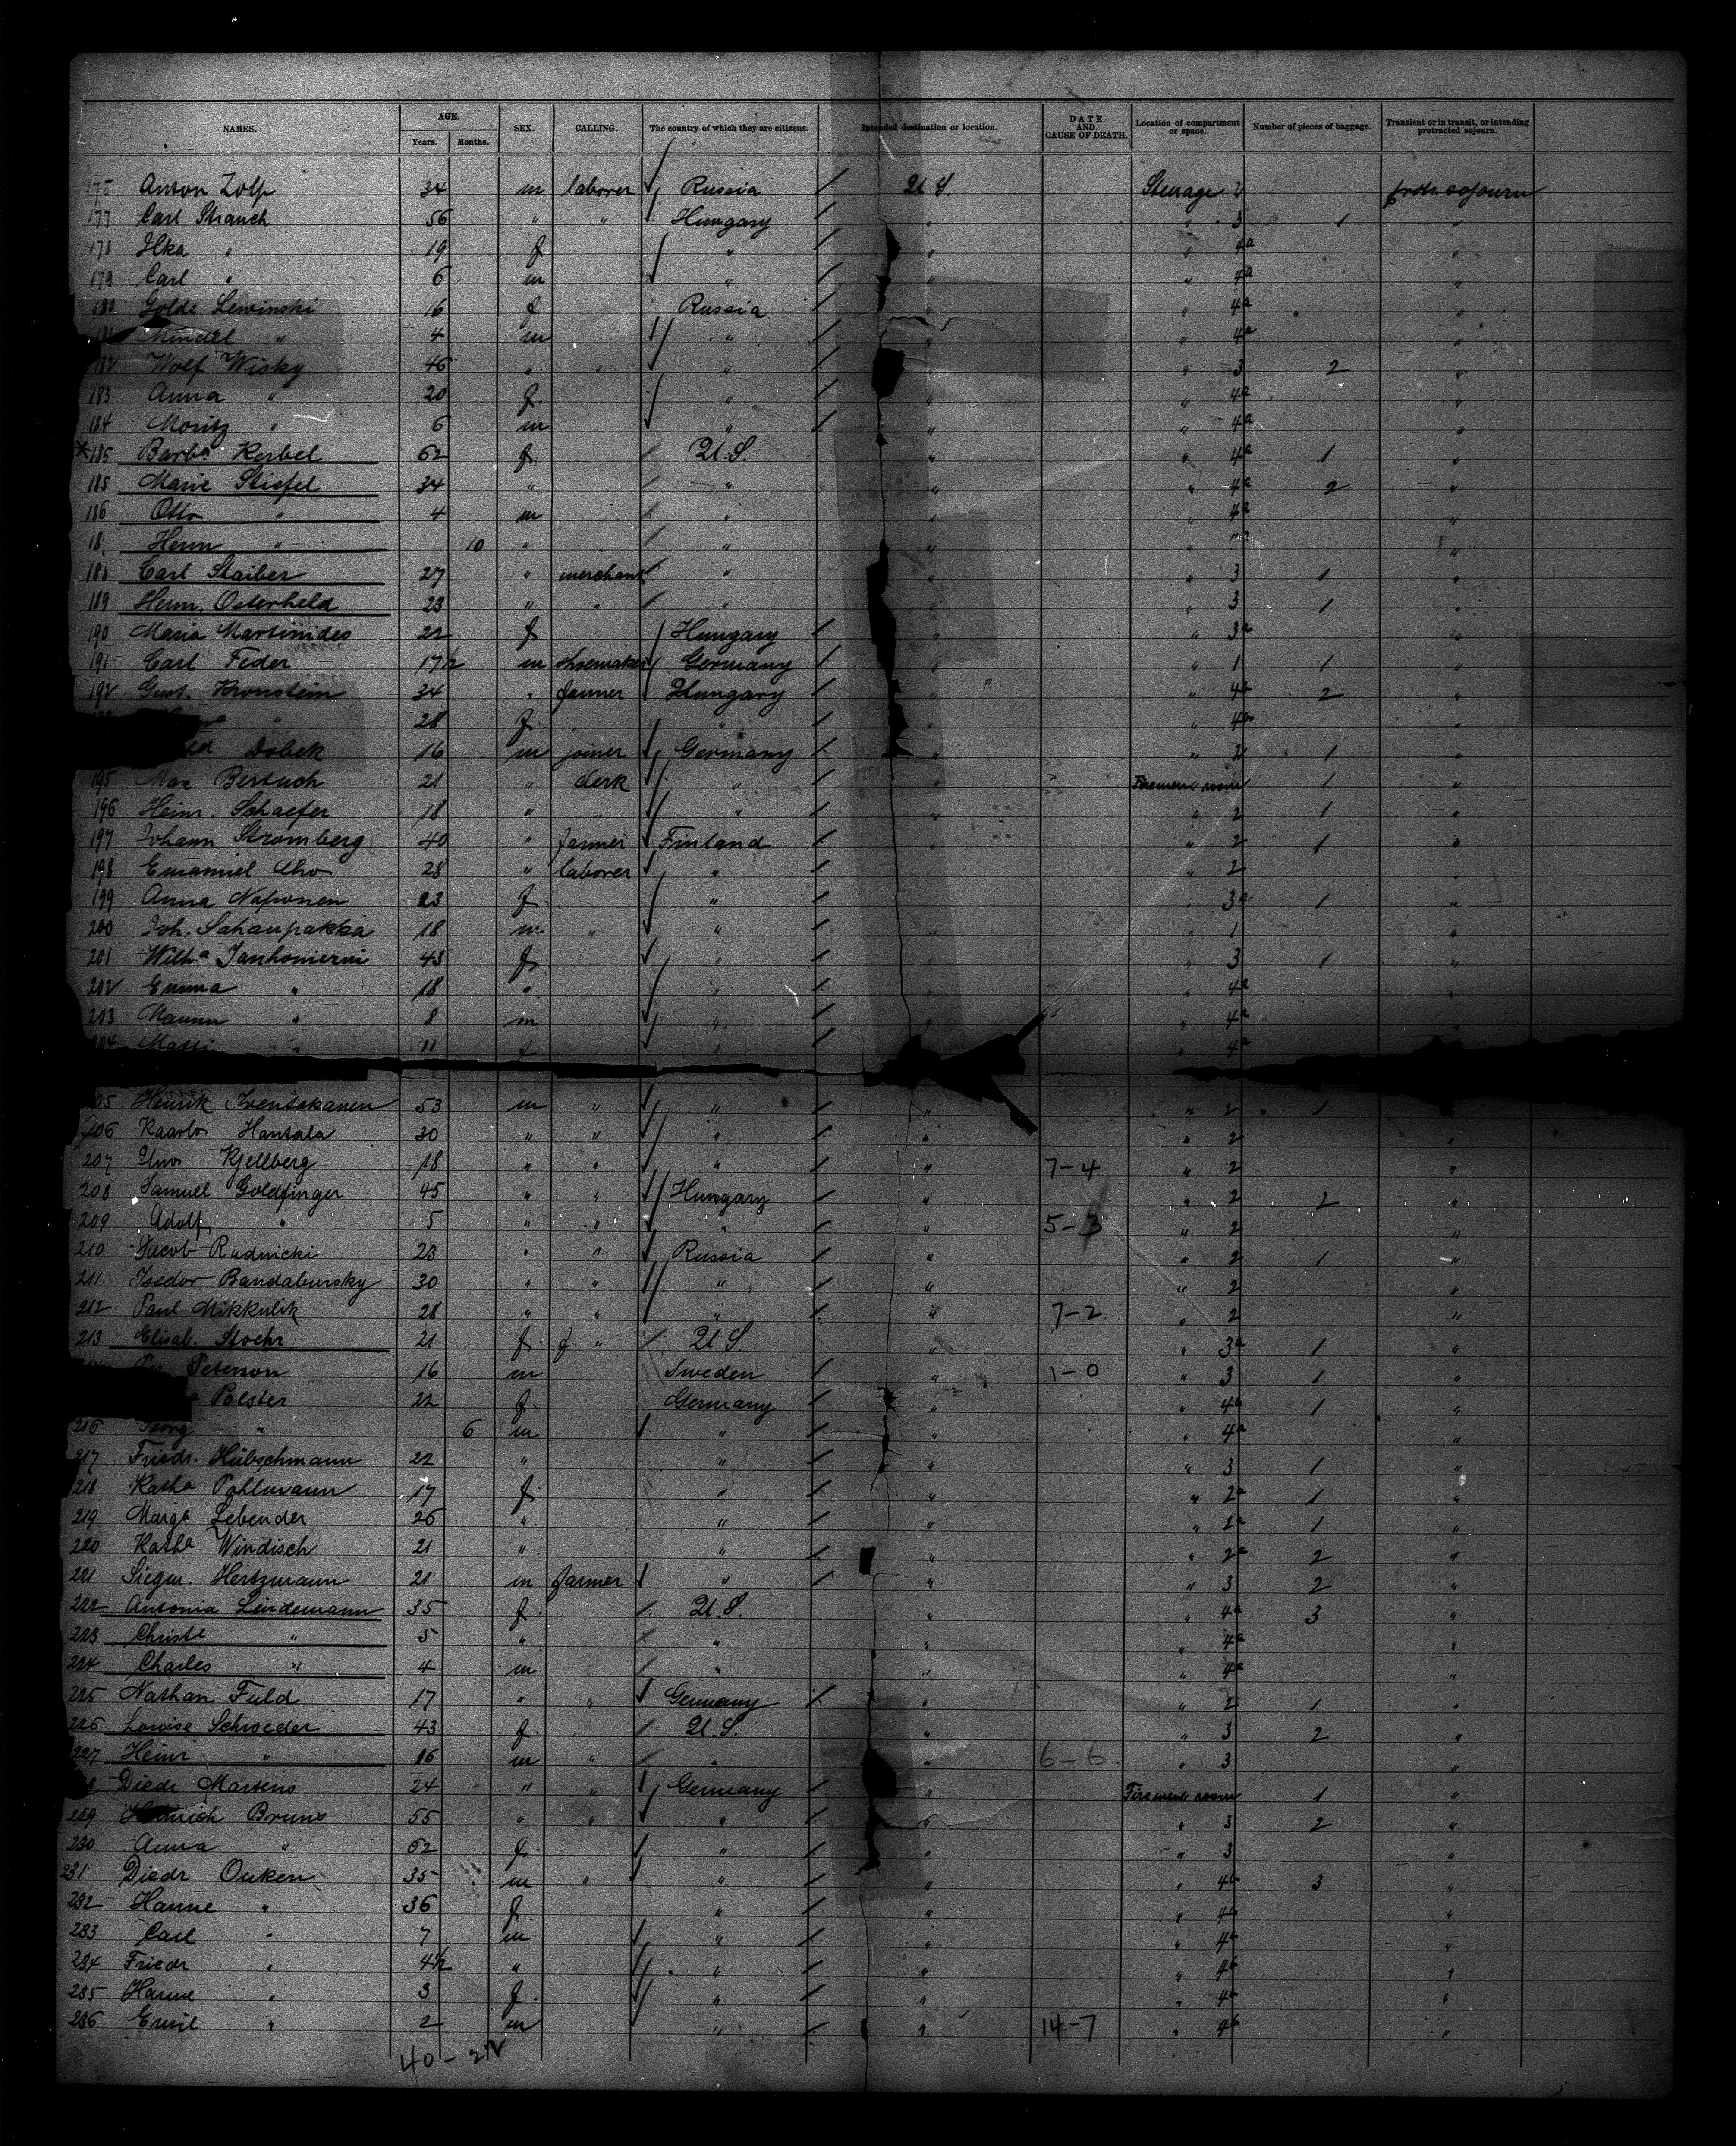 NAMES. AGE. Years. Months. SEX. CALLING. The country of which they are citizens. Intended destination or location. DATE AND CAUSE OF DEATH. Location of compartment or space. Number of pieces of baggage. Transient or in transit, or intending protracted sojourn.
Anton 34 m laborer Russia U.S. Steerage 2 sojourn
177 Carl Strauch 56 " " Hungary " " 3 1 "
178 Ilka " 19 f " " " 4a "
179 Carl " 6 m " " " 4a "
180 Golde Lewinski 16 f Russia " " 4a "
Mindel " 4 m " " " 4a "
182 Wolf Wisky 46 " " " " " 3 2 "
183 Anna " 20 f " " " 4a "
184 Moritz " 6 m " " " 4a "
185 Barba Kerbel 62 f U.S. " " 4a 1 "
185 Marie Stiefel 34 " " " " 4a 2 "
186 Otto " 4 m " " " 4a "
18 Herm " 10 " " " " "
188 Carl Staiber 27 " merchant " " " 3 1 "
189 Herm. Osterheld 23 " " " " " 3 1 "
190 Maria Martinides 22 f Hungary " " 3a "
191 Carl Feder 17½ m shoemaker Germany " " 1 1 "
192 Gust. Kronstein 34 " farmer Hungary " " 4b 2 "
" 28 f " " " 4b "
Dobek 16 m joiner Germany " " 2 1 "
195 Max Bertuch 21 " clerk " " Firemens room 1 "
196 Heinr. Schaefer 18 " " " " " 2 1 "
197 Johann Stromberg 40 " farmer Finland " " 2 1 "
198 Emanuel Aho 28 " laborer " " " 2 "
199 Anna Naponen 23 f " " " 3a 1 "
200 Joh. Sahanpakka 18 m " " " " 1 "
201 Wilha 43 f " " " 3 1 "
202 Emma " 18 " " " " 4a "
203 " 8 m " " " 4a "
204 Matti " 11 " " " 4a
05 Henrik 53 m " " " " 2 1
206 Kaarlo Hantala 30 " " " " " 2 "
207 Kjellberg 18 " " " " 7-4 " 2 "
208 Samuel Goldfinger 45 " " Hungary " " 2 2 "
209 Adolf " 5 " " " " 5-3 " 2 "
210 Jacob Rudnicki 23 " " Russia " " 2 1 "
211 Isedor Bandabursky 30 " " " " " 2 "
212 Paul Mikkulik 28 " " " " 7-2 " 2 "
213 Elisab. Stoehr 21 f " U.S. " " 3a 1 "
Peterson 16 m Sweden " 1-0 " 3 1 "
Polster 22 f Germany " " 4a 1 "
216 Georg " 6 m " " " 4a "
217 Friedr. Hübschmann 22 " " " " 3 1 "
218 Katha Pohlmann 17 f " " " 2a 1 "
219 Marga Lebender 26 " " " " 2a 1 "
220 Katha Windisch 21 " " " " 2a 2 "
221 Siegm. Hertzmann 21 m farmer " " " 3 2 "
222 Antonia Lindemann 35 f U.S. " " 4a 3 "
223 Christe " 5 " " " " 4a "
224 Charles " 4 m " " " 4a "
225 Nathan Fuld 17 " " Germany " " 2 1 "
226 Louise Schroeder 43 f U.S. " " 3 2 "
227 Heinr " 16 m " " " 6-6 " 3 "
Diedr Martens 24 " " Germany " Firemens room 1 "
229 Heinrich Bruns 55 " " " " " 3 2 "
230 Anna " 52 f " " " 3 "
231 Diedr Onken 35 m " " " " 4b 3 "
232 Hanne " 36 f " " " 4b "
233 Carl " 7 m " " " 4b "
234 Friedr " 4½ " " " " 4b "
235 Hanne " 3 f " " " 4b "
236 Emil " 2 m " " 14-7 " 4b "
40-